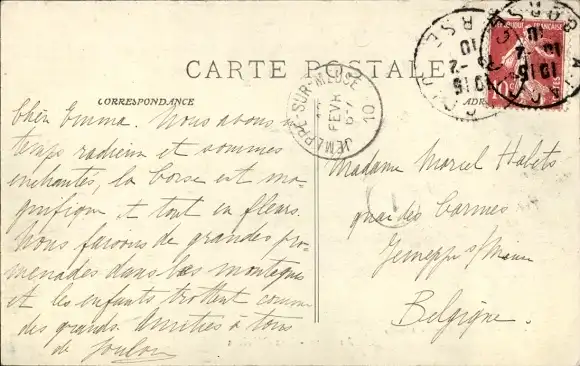 CARTE POSTALE
CORRESPONDANCE
Chère Emma. Nous avons un
temps radieux et sommes
enchantés, la Corse est ma-
gnifique et tout en fleurs.
Nous faisons de grandes pro-
menades dans les montagnes
et les enfants trottent comme
des grands. Amitiés à tous
de
JEMEPPE-SUR-MEUSE
FEVR
10
Madame Marcel Habets
quai des Carmes
Jemeppe s/Meuse
Belgique.
RÉPUBLIQUE FRANÇAISE
CORSE